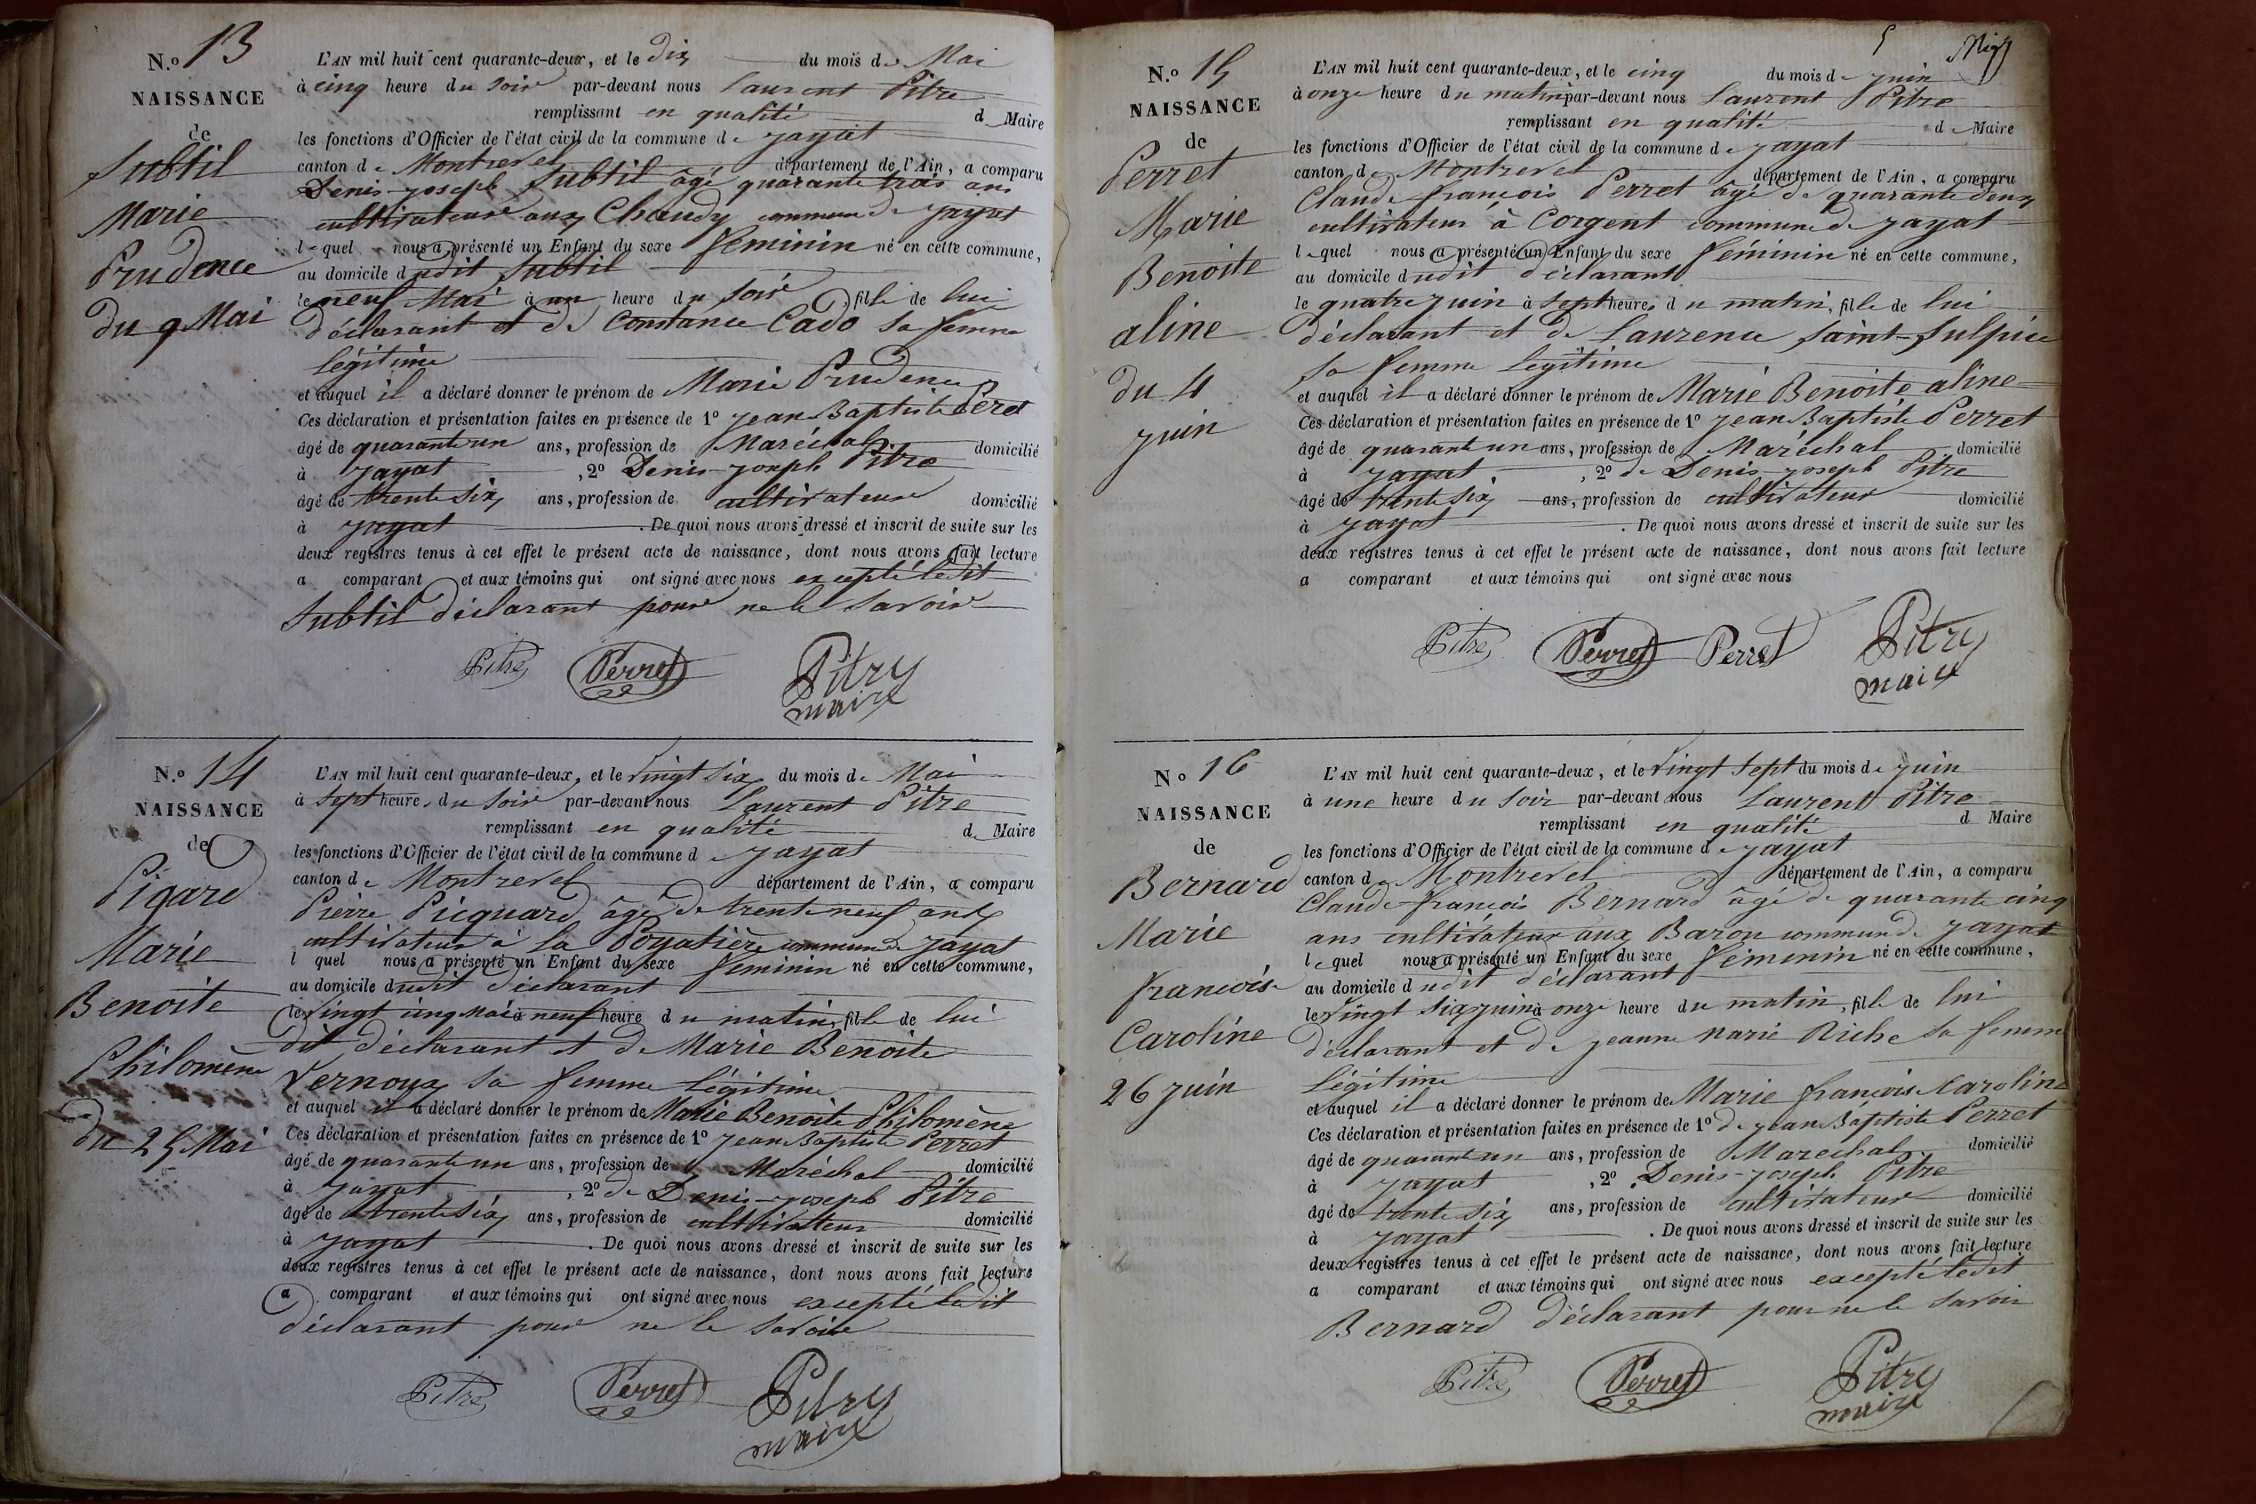 N.º 13
NAISSANCE
de
Subtil
Marie
Prudence
du 9 Mai
L'AN mil huit cent quarante-deux, et le Dix du mois de Mai
à cinq heure du soir par-devant nous Laurent Pitre
remplissant en qualité d Maire
les fonctions d'Officier de l'état civil de la commune de Jayat
canton de Montrevel département de l'Ain, a comparu
Denis-Joseph Subtil âgé quarante trois ans
cultivateur aux Chaudy commune de Jayat
lequel nous a présenté un Enfant du sexe féminin né en cette commune,
au domicile dudit Subtil
le neuf Mai à un heure du soir fille de lui
déclarant et de Constance Cado sa femme
légitime
et auquel il a déclaré donner le prénom de Marie Prudence
Ces déclaration et présentation faites en présence de 1º Jean Baptiste Peret
âgé de quarante un ans, profession de Maréchal domicilié
à Jayat, 2º Denis-Joseph Pitre
âgé de trente six ans, profession de cultivateur domicilié
à Jayat. De quoi nous avons dressé et inscrit de suite sur les
deux registres tenus à cet effet le présent acte de naissance, dont nous avons fait lecture
a comparant et aux témoins qui ont signé avec nous excepté ledit
Subtil déclarant pour ne le savoir
Pitre Perret Pitre
maire
N.º 14
NAISSANCE
de
Pigard
Marie
Benoite
Philomène
du 25 Mai
L'AN mil huit cent quarante-deux, et le vingt six du mois de Mai
à sept heure du soir par-devant nous Laurent Pitre
remplissant en qualité de Maire
les fonctions d'Officier de l'état civil de la commune de Jayat
canton de Montrevel département de l'Ain, a comparu
Pierre Picquard âgé de trente neuf ans
cultivateur à la Poyatière commune de Jayat
l quel nous a présenté un Enfant du sexe féminin né en cette commune,
au domicile dudit déclarant
le vingt cinq Mai à neuf heure du matin, fille de lui
dit déclarant et de Marie Benoite
Vernoux sa femme légitime
et auquel il a déclaré donner le prénom de Marie Benoite Philomène
Ces déclaration et présentation faites en présence de 1º Jean Baptiste Perret
âgé de quarante un ans, profession de Maréchal domicilié
à Jayat, 2º de Denis-Joseph Pitre
âgé de trente six ans, profession de cultivateur domicilié
à Jayat. De quoi nous avons dressé et inscrit de suite sur les
deux registres tenus à cet effet le présent acte de naissance, dont nous avons fait lecture
a comparant et aux témoins qui ont signé avec nous excepté ledit
déclarant pour ne le savoir
Pitre Perret Pitre
maire
5
N.º 15
NAISSANCE
de
Perret
Marie
Benoite
aline
du 4
juin
L'AN mil huit cent quarante-deux, et le cinq du mois de juin
à onze heure du matin par-devant nous Laurent Pitre
remplissant en qualité de Maire
les fonctions d'Officier de l'état civil de la commune de Jayat
canton de Montrevel département de l'Ain, a comparu
Claude françois Perret âgé de quarante deux
cultivateur à Corgent commune de Jayat
lequel nous a présenté un Enfant du sexe féminin né en cette commune,
au domicile dudit déclarant
le quatre juin à sept heures du matin, fille de lui
déclarant et de Laurence Saint-Sulpice
sa femme légitime
et auquel il a déclaré donner le prénom de Marie Benoite aline
Ces déclaration et présentation faites en présence de 1º Jean Baptiste Perret
âgé de quarante un ans, profession de Maréchal domicilié
à Jayat, 2º de Denis-Joseph Pitre
âgé de trente six ans, profession de cultivateur domicilié
à Jayat. De quoi nous avons dressé et inscrit de suite sur les
deux registres tenus à cet effet le présent acte de naissance, dont nous avons fait lecture
a comparant et aux témoins qui ont signé avec nous
Pitre Perret Perret Pitre
maire
Nº 16
NAISSANCE
de
Bernard
Marie
françois
Caroline
26 juin
L'AN mil huit cent quarante-deux, et le vingt sept du mois de juin
à une heure du soir par-devant nous Laurent Pitre
remplissant en qualité d Maire
les fonctions d'Officier de l'état civil de la commune de Jayat
canton de Montrevel département de l'Ain, a comparu
Claude françois Bernard âgé de quarante cinq
ans cultivateur aux Baron commune de Jayat
lequel nous a présenté un Enfant du sexe féminin né en cette commune,
au domicile dudit déclarant
le vingt six juin à onze heure du matin, fille de lui
déclarant et de jeanne Marie Riche sa femme
légitime
et auquel il a déclaré donner le prénom de Marie françois Karoline
Ces déclaration et présentation faites en présence de 1º de Jean Baptiste Perret
âgé de quarante un ans, profession de Marechal domicilié
à Jayat, 2º Denis-Joseph Pitre
âgé de trente six ans, profession de cultivateur domicilié
à Jayat. De quoi nous avons dressé et inscrit de suite sur les
deux registres tenus à cet effet le présent acte de naissance, dont nous avons fait lecture
a comparant et aux témoins qui ont signé avec nous excepté ledit
Bernard déclarant pour ne le savoir
Pitre Perret Pitre
maire